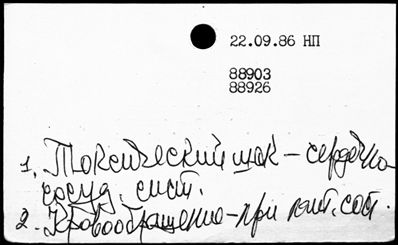 22.09.86 НП
88903
88926
1. Токсический шок – сердечно-
сосуд. сист.
2. Кровообращение – при пат. сост.